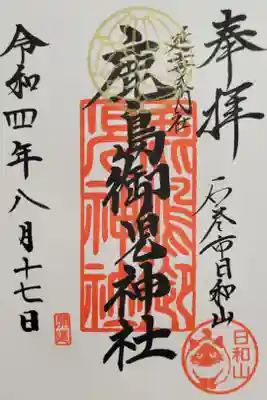 奉拝
石巻市日和山
延喜式内社
鹿島御児神社
鹿島御児神社
令和四年八月十七日
日和山